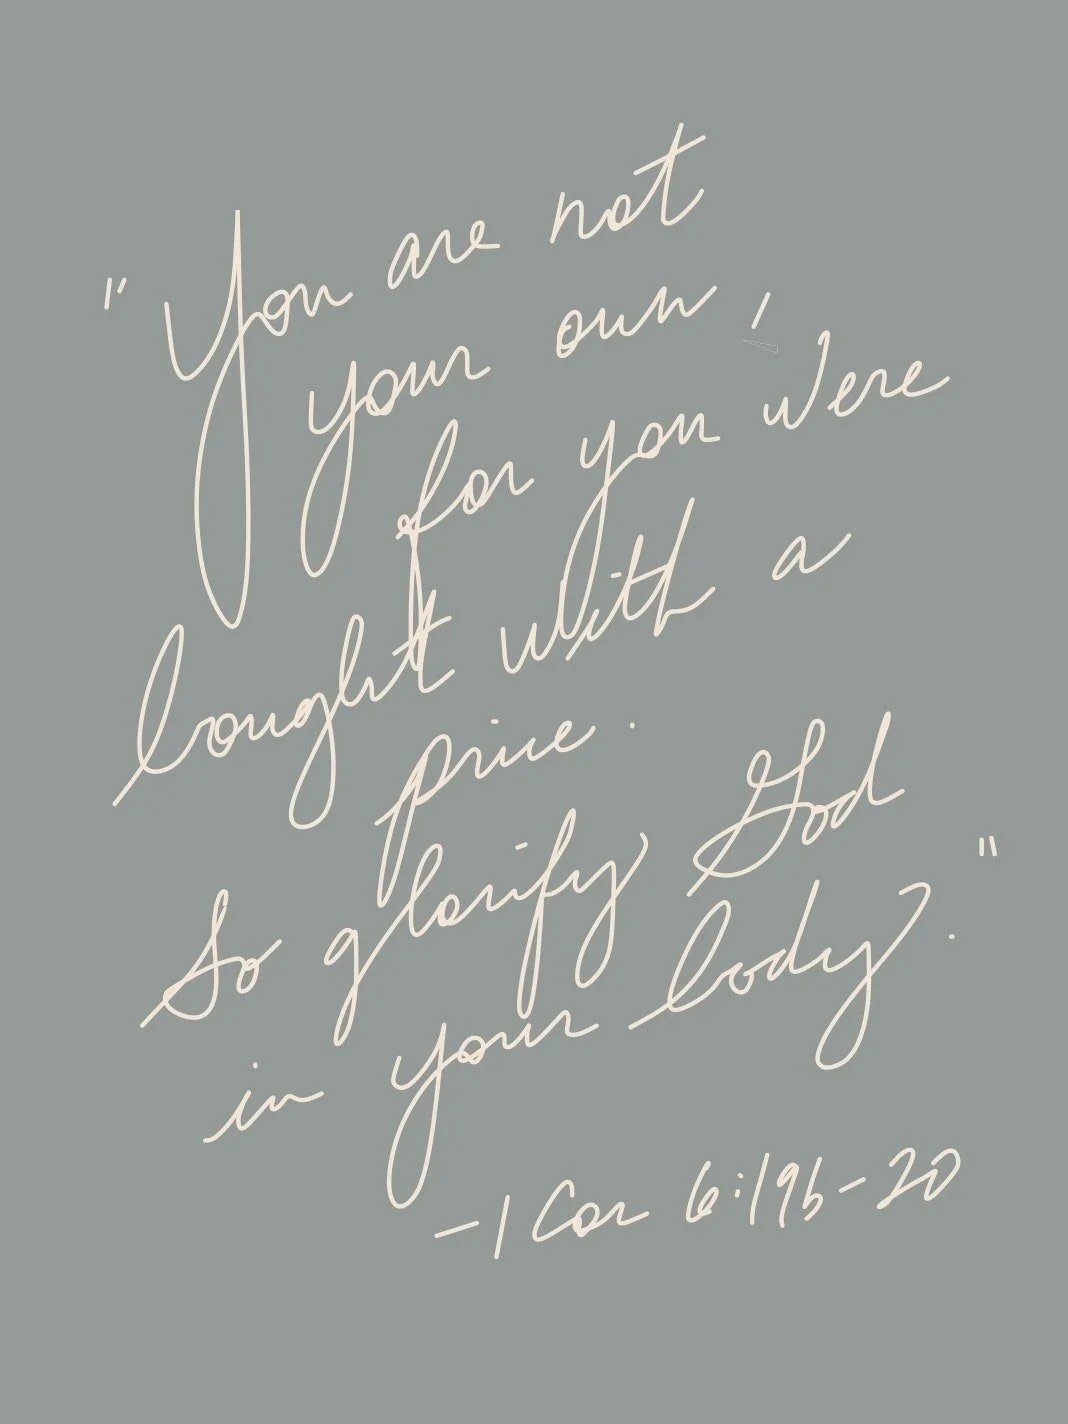 "You are not
your own,
for you were
bought with a
price.
So glorify God
in your body."
-1 Cor 6:19b-20